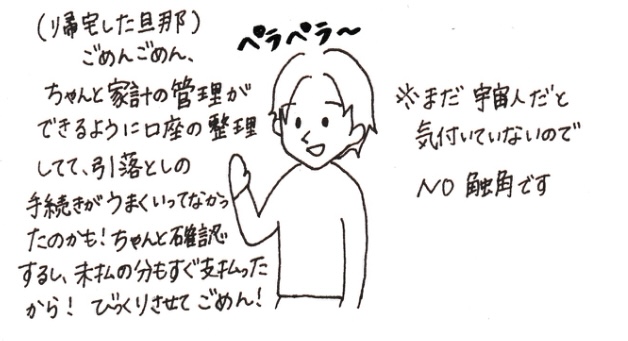 (帰宅した旦那)
ごめんごめん、
ちゃんと家計の管理が
できるように口座の整理
してて、引落としの
手続きがうまくいってなかっ
たのかも!ちゃんと確認
するし、未払の分もすぐ支払った
から! びっくりさせてごめん!
ペラペラ〜
※まだ宇宙人だと
気付いていないので
NO 触角です